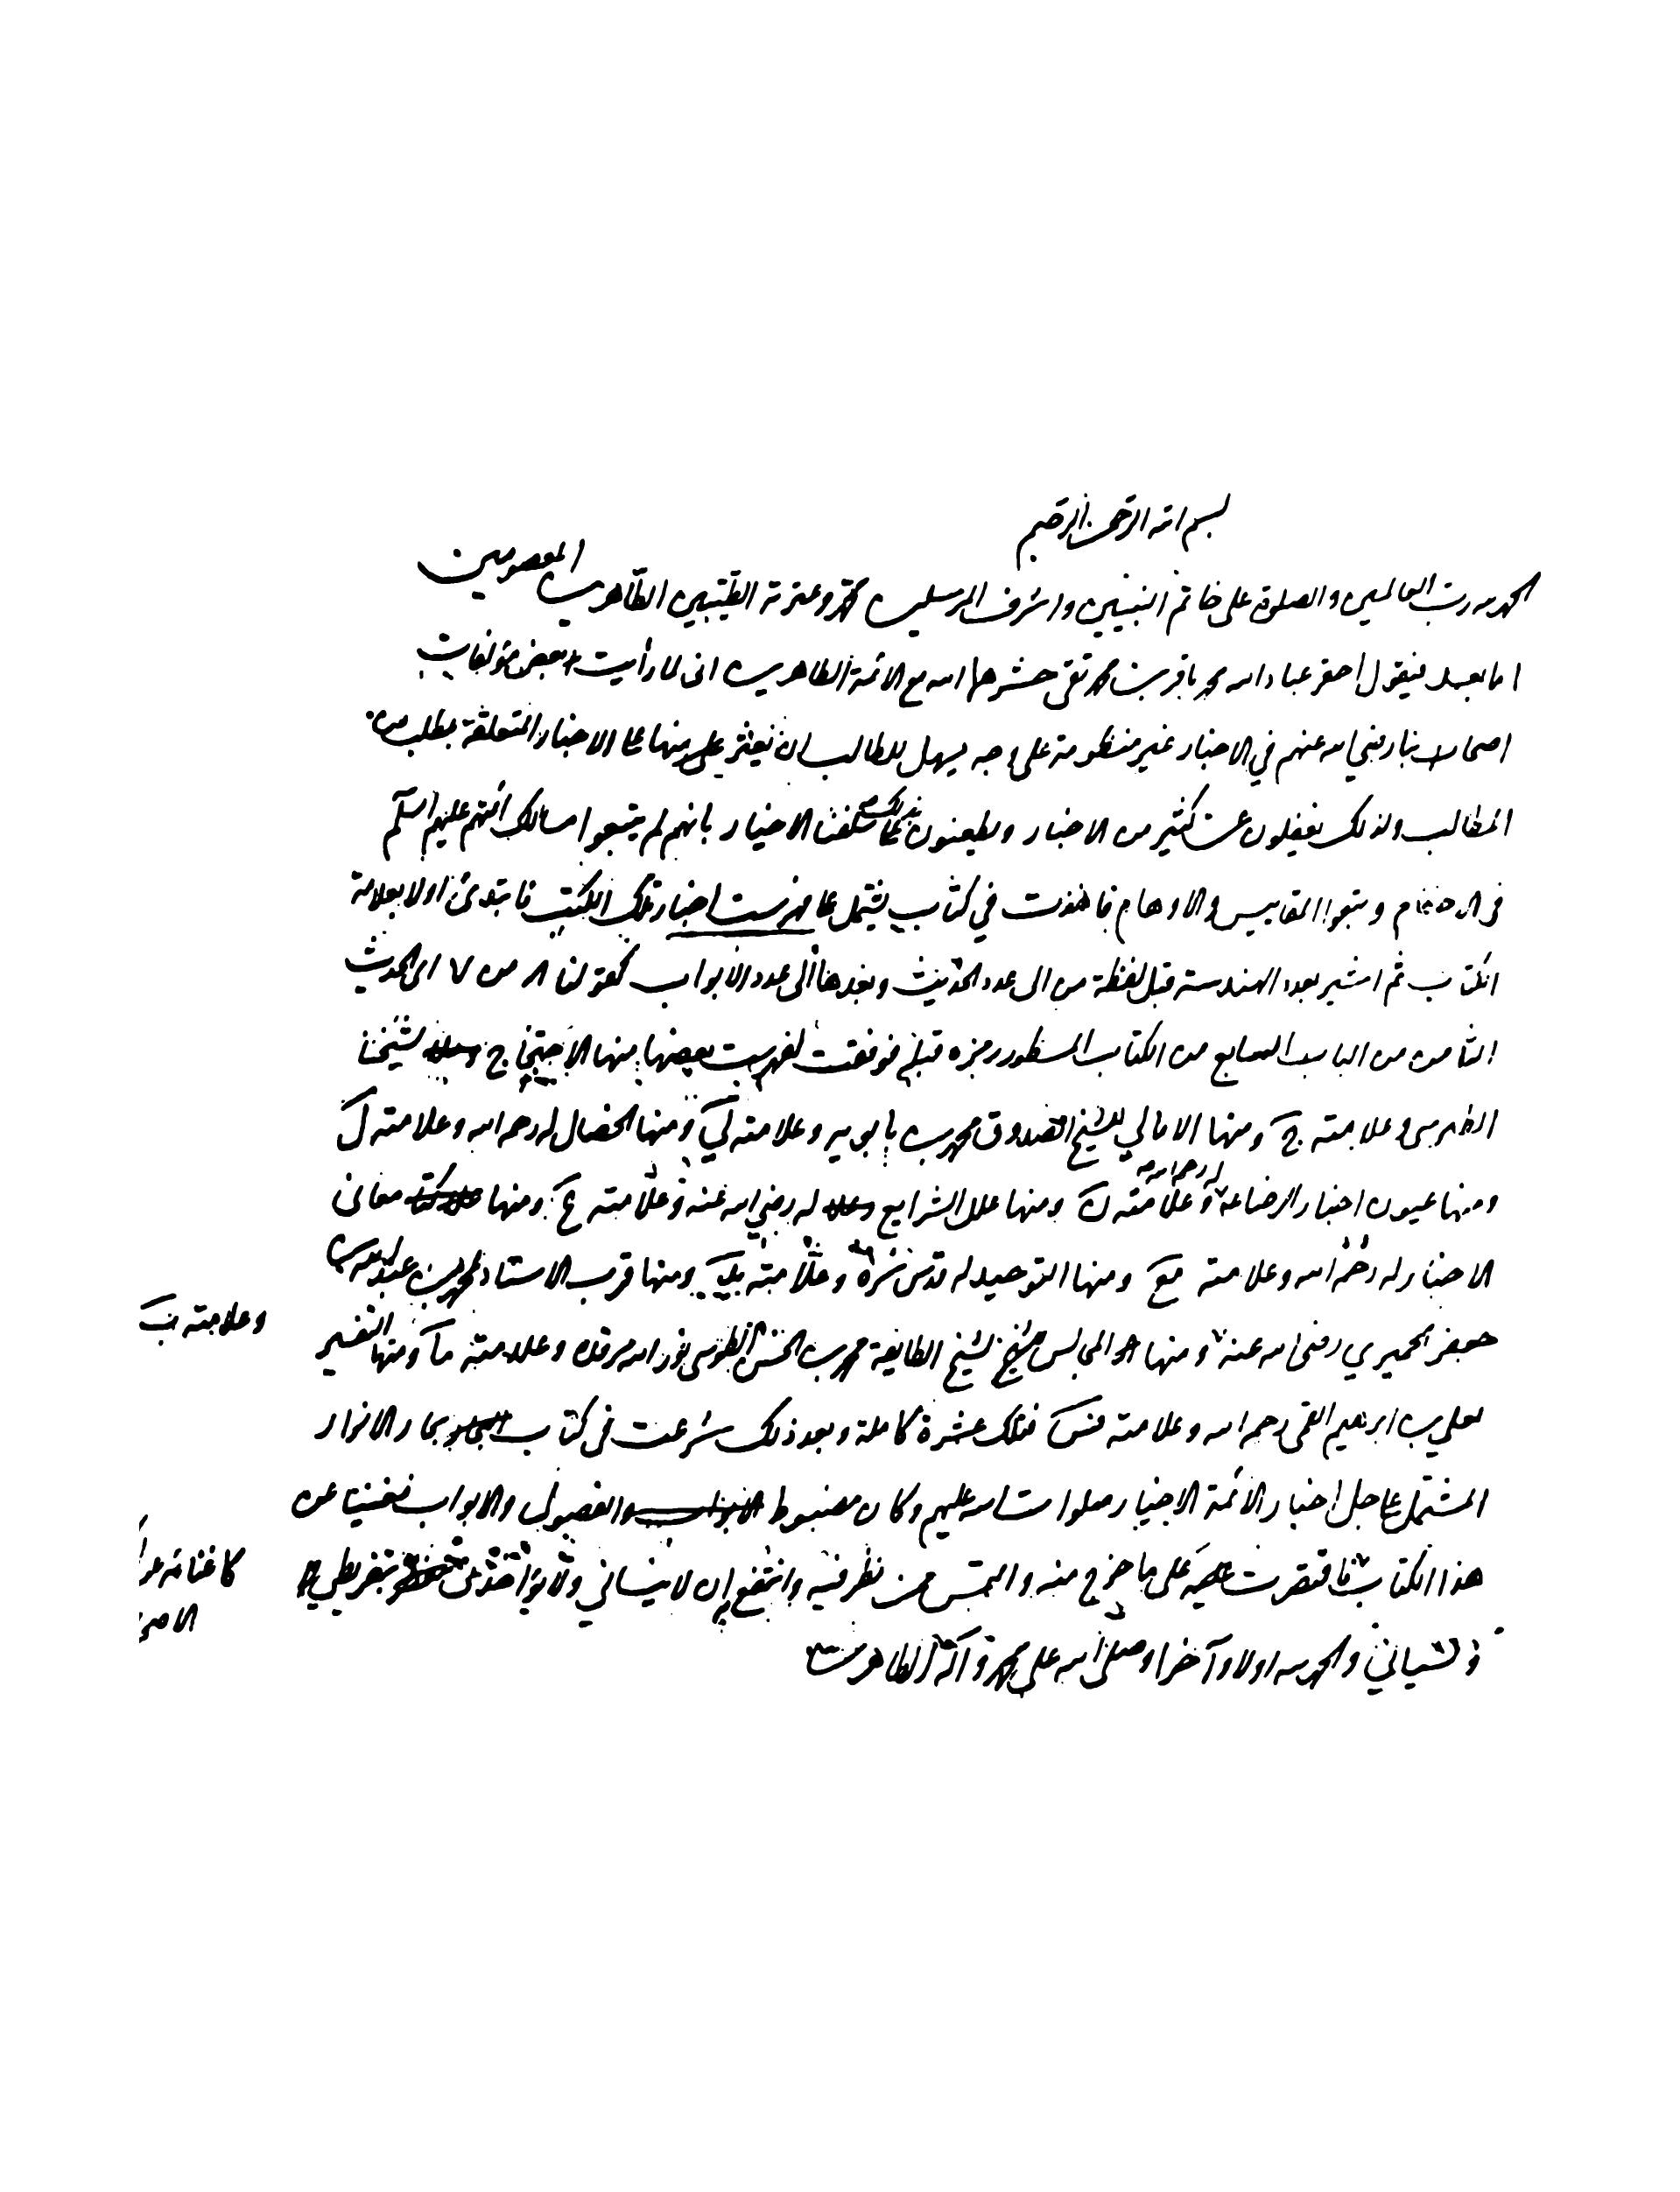 بسم الله الرحمن الرحيم
الحمد لله رب العالمين والصلوة على خاتم النبيين واشرف المرسلين محمد وعترته الطيبين الطاهرين المعصومين
اما بعد فيقول احقر عباد الله محمد باقر بن محمد تقى حشرهما الله مع الائمة الطاهرين انى لما رأيت بعض مؤلفات
اصحابنا رضي الله عنهم في الاخبار غير منظومة على وجه يسهل للطالب ان يعثر منها على الاخبار المتعلقة بمطلب من
المطالب ولذلك يغفلون عن كثير من الاخبار ويطعنون بذلك على سلفنا الاخيار بانهم لم يتبعوا مسالك ائمتهم عليهم السلم
فى الاحكام وتبعوا المقاييس والاوهام فاخذت في كتاب يشتمل على فهرست اخبار تلك الكتب فابتدئ اولا بعلامة
الكتاب ثم اشير بعدد الهندسة قبل لفظة من الى عدد الحديث وبعدها الى عدد الابواب كقولنا ٨ من ٧ اى الحديث
الثامن من الباب السابع من الكتاب المسطور رمزه قبله فوفقت لفهرست بعضها منها الاحتجاج لشيخنا
الطبرسى وعلامته ج ومنها الامالي للشيخ الصدوق محمد بن بابويه وعلامته لي ومنها الخصال له رحمه الله وعلامته ل
ومنها عيون اخبار الرضا له رحمه الله وعلامته ن ومنها علل الشرايع له رضي الله عنه وعلامته ع ومنها معانى
الاخبار له رحمه الله وعلامته مع ومنها التوحيد له قدس سره وعلامته يد ومنها قرب الاسناد لمحمد بن عبد الله بن
جعفر الحميري رضى الله عنه وعلامته ب ومنها المجالس لشيخ الطايفة محمد بن الحسن الطوسى نور الله مرقده وعلامته ما ومنها التفسير
لعلي بن ابرهيم القمى رحمه الله وعلامته فس فتلك عشرة كاملة وبعد ذلك شرعت فى كتاب بحار الانوار
المشتمل على جل اخبار الائمة الاخيار صلوات الله عليهم وكان مضبوط الفصول والابواب مغنيا عن
هذا الكتاب فاقتصرت على ما خرج منه والتمس ممن نظر فيه وانتفع به ان لا ينساني ولا يؤاخذنى بتفريطي
ونسياني والحمد لله اولا وآخرا وصلى الله على محمد وآله الطاهرين